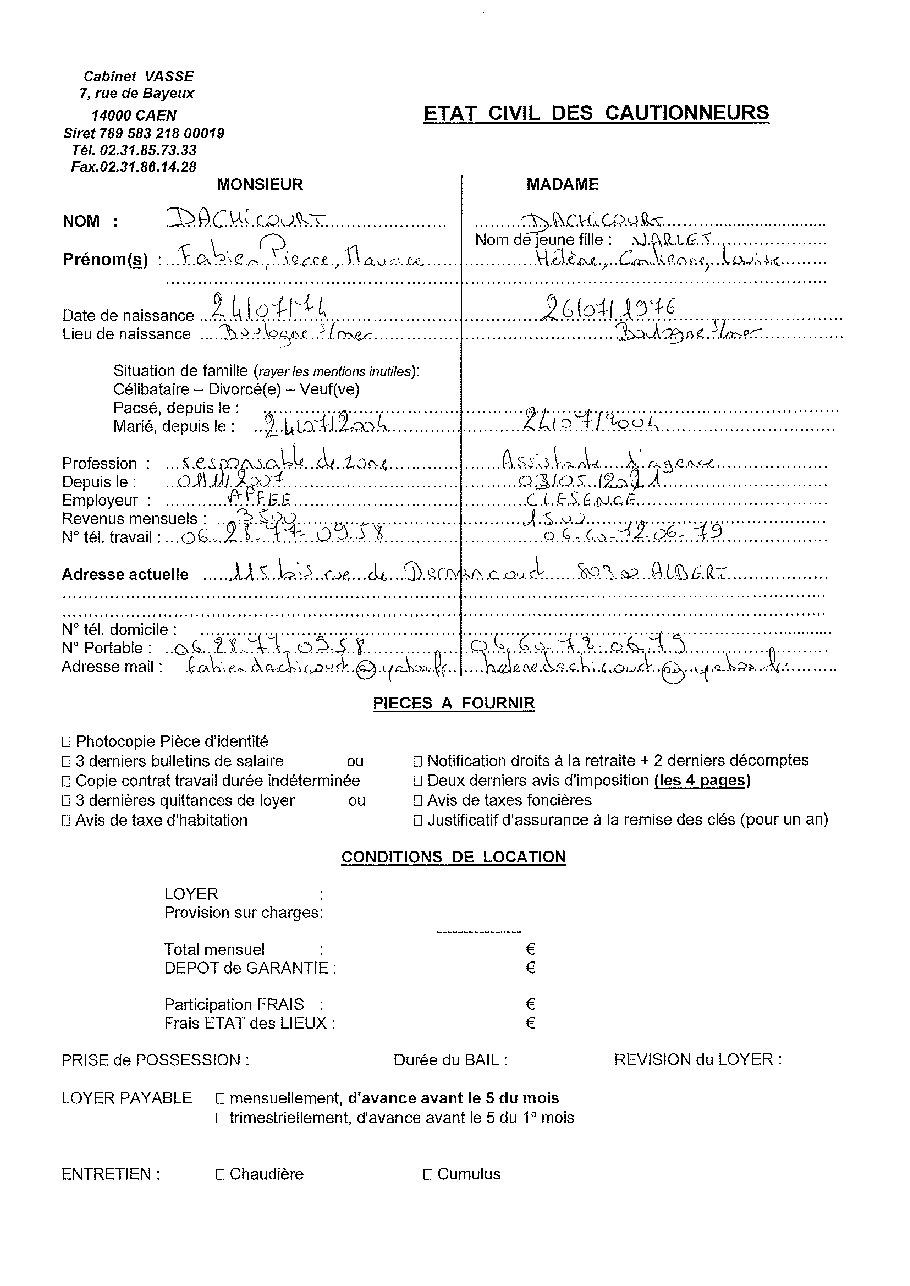 Cabinet VASSE
7, rue de Bayeux
14000 CAEN
Siret 789 583 218 00019
Tél. 02.31.85.73.33
Fax.02.31.86.14.28
ETAT CIVIL DES CAUTIONNEURS
MONSIEUR MADAME
NOM : DACHICOURT DACHICOURT
Nom de jeune fille : NARLET
Prénom(s) : Fabien, Pierre, Maurice Hélène, Louise
Date de naissance 24/07/74 26/07/1976
Lieu de naissance Boulogne s/mer Boulogne s/mer
Situation de famille (rayer les mentions inutiles):
Célibataire – Divorcé(e) – Veuf(ve)
Pacsé, depuis le :
Marié, depuis le : 24/07/2004 24/07/2004
Profession : responsable de zone Assistante d'agence
Depuis le : 2007 03/05/2021
Employeur : APEEE CLESENCE
Revenus mensuels : 3500 1500
N° tél. travail : 06 28.77.09.58 06.60.72.06.79
Adresse actuelle 115 bis rue de Dernancourt 80300 ALBERT
N° tél. domicile :
N° Portable : 06 28 77 09 58 06.60.72.06.79
Adresse mail : fabiendachicourt@yahoo.fr helenedachicourt@yahoo.fr
PIECES A FOURNIR
□ Photocopie Pièce d'identité
□ 3 derniers bulletins de salaire ou □ Notification droits à la retraite + 2 derniers décomptes
□ Copie contrat travail durée indéterminée □ Deux derniers avis d'imposition (les 4 pages)
□ 3 dernières quittances de loyer ou □ Avis de taxes foncières
□ Avis de taxe d'habitation □ Justificatif d'assurance à la remise des clés (pour un an)
CONDITIONS DE LOCATION
LOYER :
Provision sur charges:
----------------
Total mensuel : €
DEPOT de GARANTIE : €
Participation FRAIS : €
Frais ETAT des LIEUX : €
PRISE de POSSESSION : Durée du BAIL : REVISION du LOYER :
LOYER PAYABLE □ mensuellement, d'avance avant le 5 du mois
□ trimestriellement, d'avance avant le 5 du 1° mois
ENTRETIEN : □ Chaudière □ Cumulus